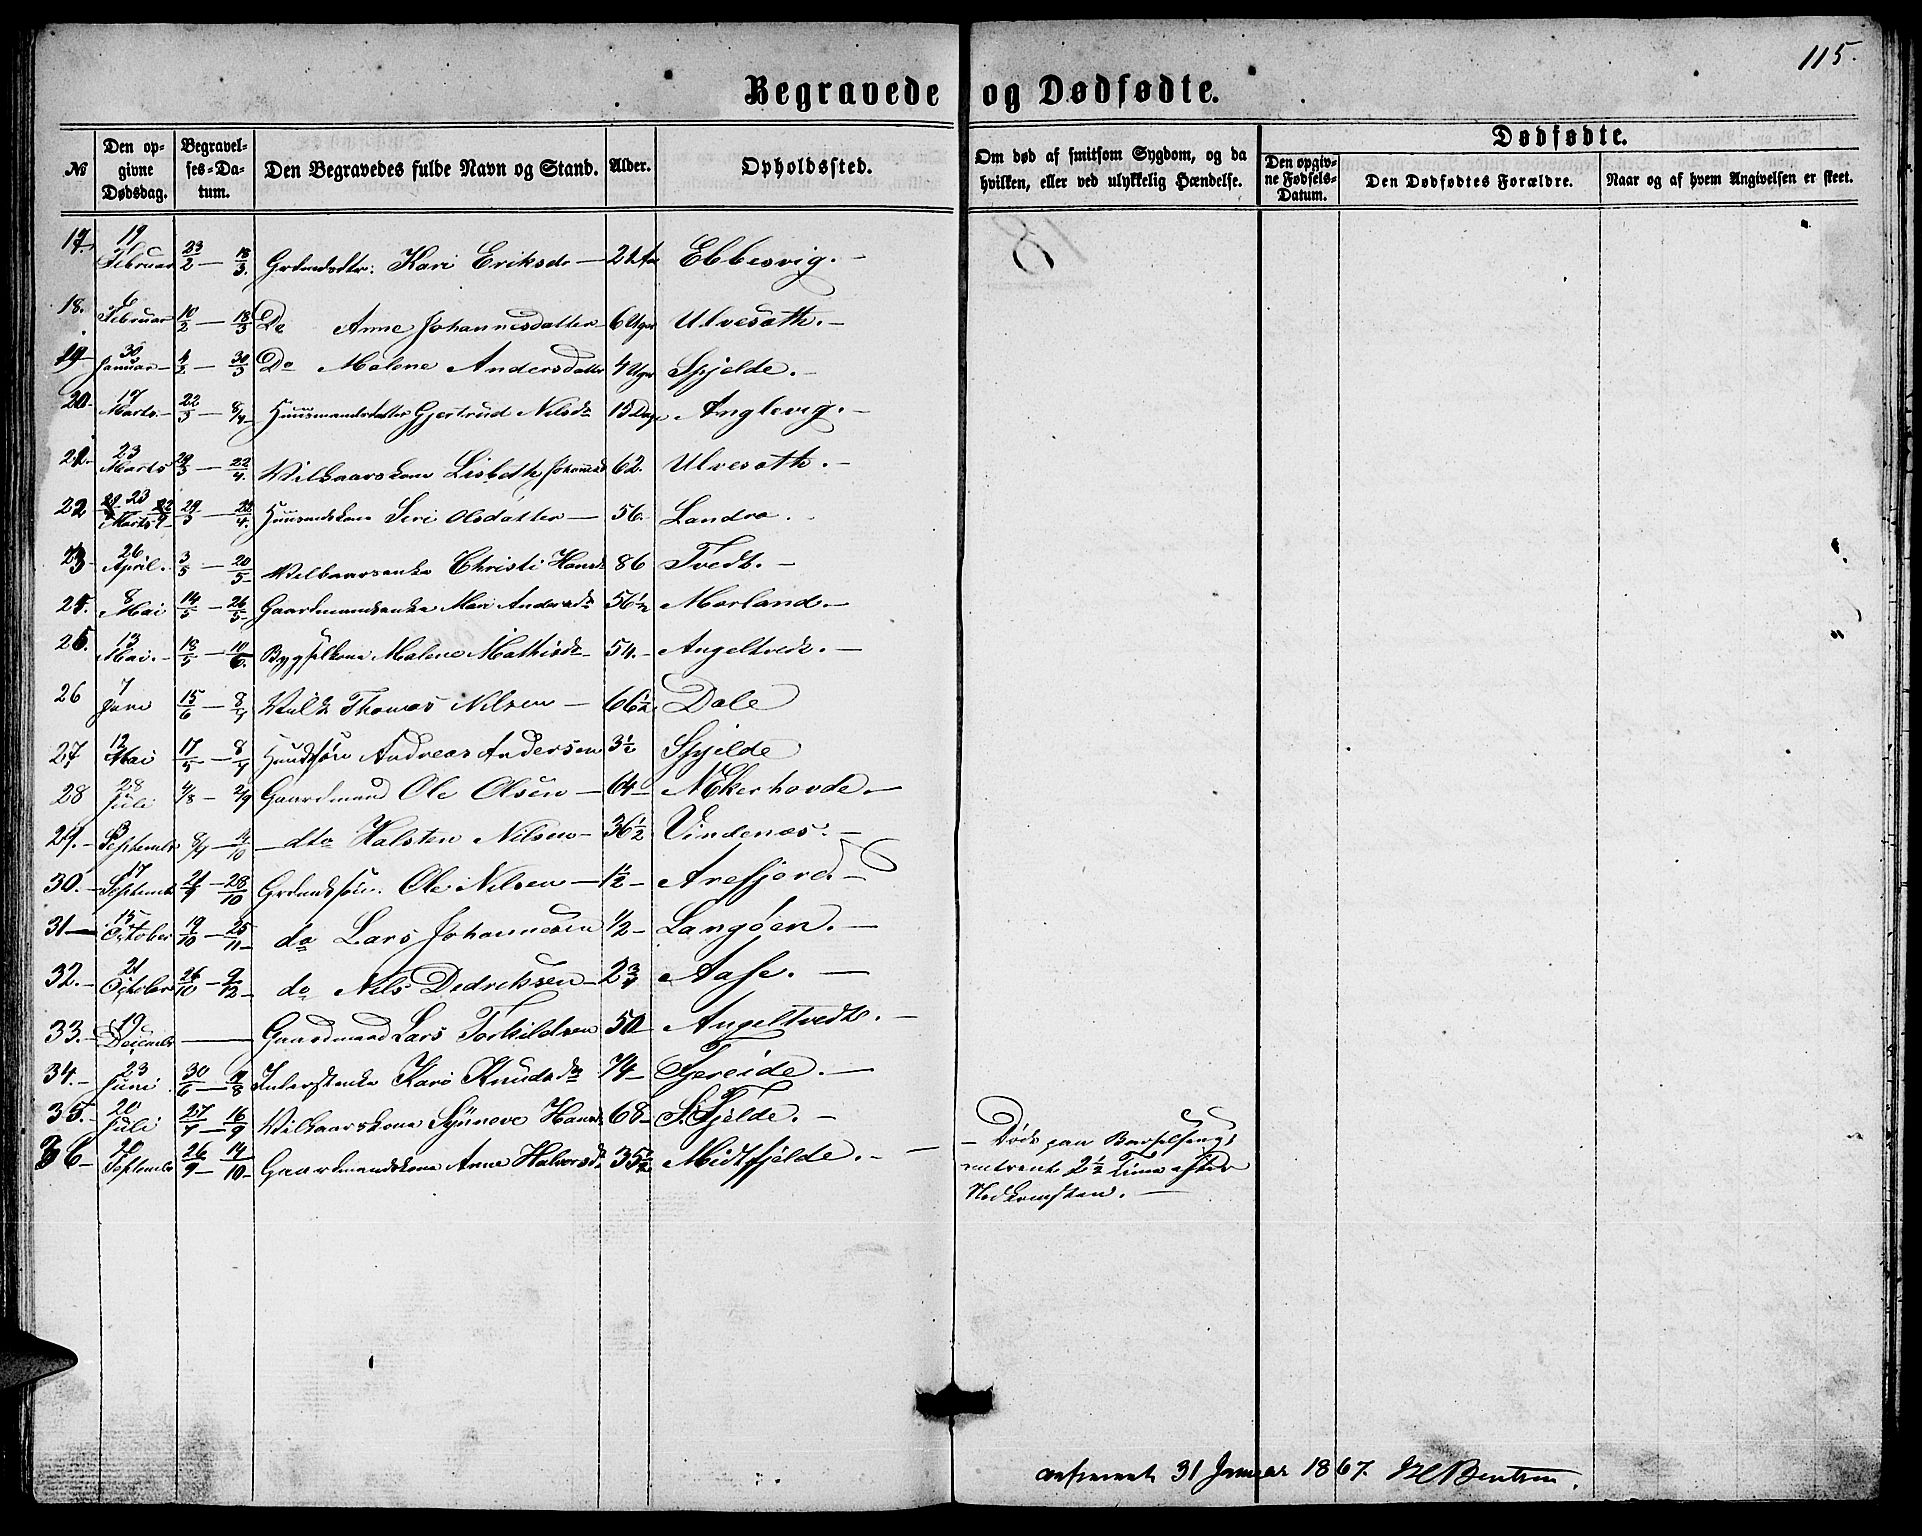 115.
Begravede og Dødfødte.
№ Den opgivne Dødsdag. Begravelses-Datum. Den Begravedes fulde Navn og Stand. Alder. Opholdssted. Om død af smitsom Sygdom, og da hvilken, eller ved ulykkelig Hændelse. Dødfødte. Den opgivne Fødsels-Datum. Den Dødfødtes Forældre. Naar og af hvem Angivelsen er skeet.
17. 19 Februar 23/2 — 18/3. Kari Eriksdr — Ebbesvig. —
18. 6 Februar 10/2 — 18/3 Do Anne Johannesdatter 6 Uger Ulvesæth. —
19 30 Januar 4/2 — 30/3 Do Malene Andersdatter 4 Uger Spjelde. —
20 17 Marts 22/3 — 8/4 Huusmandsdatter Gjertrud Nilsdr Anglevig. —
21. 23 Marts 29/3 — 22/4. Vilkaarskone Lisbeth 62. Ulvesæth. —
22 23 Marts 29/3 — 22/4. Siri Olsdatter — 56. Landro.
23 26 April. 3/5 — 20/5 Christi Hansd 86 Tvedt. —
24. 8 Mai 14/5 — 26/5 Gaardmandsenke Mari Andersdr 56½ Morland. —
25. 13 Mai. 18/5 — 10/6. Bygselkone Malene Mathisdr 54. Angeltvedt. —
26 7 Juni 15/6 — 8/7 Thomas Nilsen — 66½ Dale
27 12 Mai 17/5 — 8/7 Andreas Andersen 3½ Spjelde
28 28 Juli 4/8 — 2/9 Gaardmand Ole Olsen — 64 Ækerhovde. —
29. 3 September — 14/10 dto Halsten Nilsen — 36½ Vindenæs. —
30. 17 September 21/9 — 28/10 Ole Nilsen — 1½ Arefjord. —
31 15 October 19/10 — 25/11 do Lars Johannesen 1/2 Langøen. —
32. 21 October 26/10 — 9/12 do Nils Dedriksen — 2¾ Aase. —
33. 19 December — Gaardmand Lars Torkildsen 50 Angeltvedt. —
34. 23 Juni 30/6 — Kari Knudsdr 74 Tjereide. —
35. 20 Juli 27/7 — 16/9 Vilkaarskone Synneve Hansd 68 Fjelde. —
36 20 September 26/9 — 14/10 Gaardmandskone Anne Halvorsd 35½ Midtfjelde. — — Døde paa Barselseng,
omtrent 2½ Time efter
Nedkomsten. —
31 Januar 1867. Bentsen.